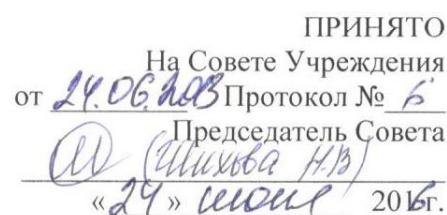 ПРИНЯТО
На Совете Учреждения
от 24.06.2013 Протокол № 6
Председатель Совета
(Шихова Н.В)
«24» июня 2016г.